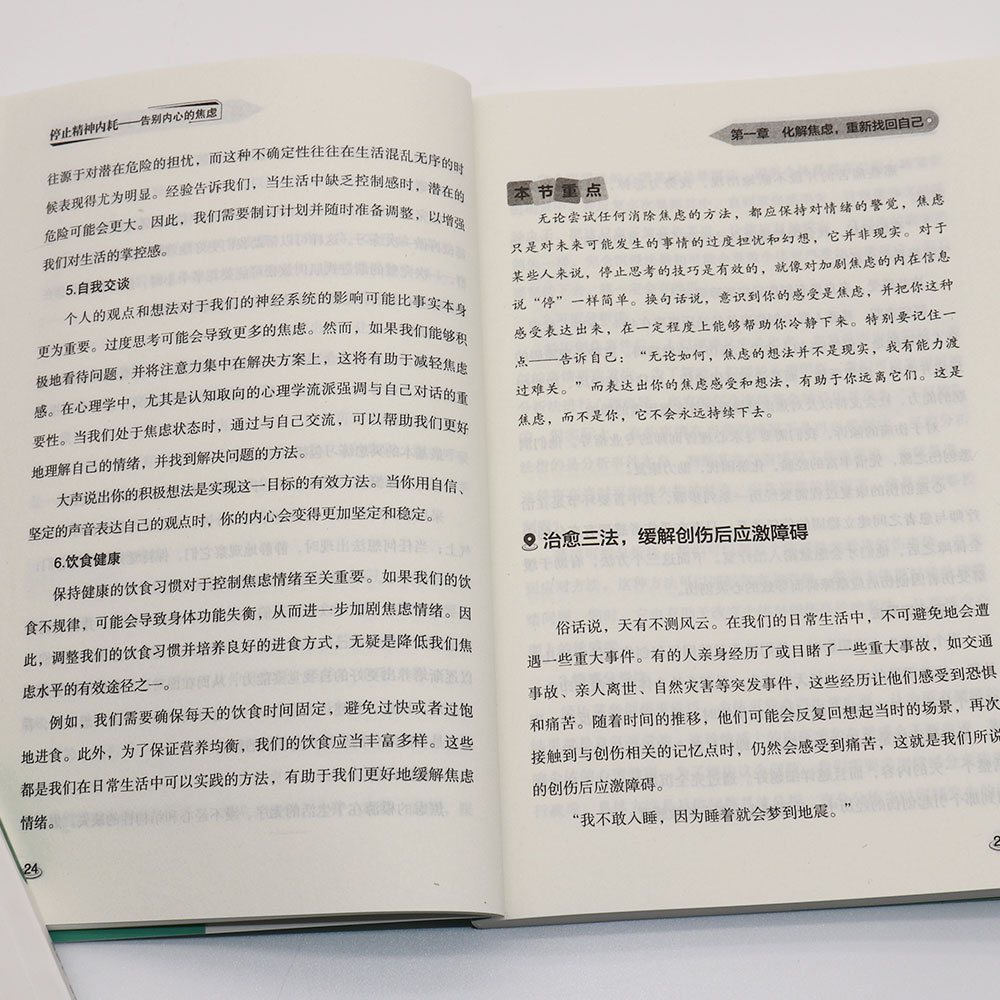 停止精神内耗——告别内心的焦虑
往源于对潜在危险的担忧，而这种不确定性往往在生活混乱无序的时
候表现得尤为明显。经验告诉我们，当生活中缺乏控制感时，潜在的
危险可能会更大。因此，我们需要制订计划并随时准备调整，以增强
我们对生活的掌控感。
5.自我交谈
个人的观点和想法对于我们的神经系统的影响可能比事实本身
更为重要。过度思考可能会导致更多的焦虑。然而，如果我们能够积
极地看待问题，并将注意力集中在解决方案上，这将有助于减轻焦虑
感。在心理学中，尤其是认知取向的心理学流派强调与自己对话的重
要性。当我们处于焦虑状态时，通过与自己交流，可以帮助我们更好
地理解自己的情绪，并找到解决问题的方法。
大声说出你的积极想法是实现这一目标的有效方法。当你用自信、
坚定的声音表达自己的观点时，你的内心会变得更加坚定和稳定。
6.饮食健康
保持健康的饮食习惯对于控制焦虑情绪至关重要。如果我们的饮
食不规律，可能会导致身体功能失衡，从而进一步加剧焦虑情绪。因
此，调整我们的饮食习惯并培养良好的进食方式，无疑是降低我们焦
虑水平的有效途径之一。
例如，我们需要确保每天的饮食时间固定，避免过快或者过饱
地进食。此外，为了保证营养均衡，我们的饮食应当丰富多样。这些
都是我们在日常生活中可以实践的方法，有助于我们更好地缓解焦虑
情绪。
24
第一章 化解焦虑，重新找回自己
本节重点
无论尝试任何消除焦虑的方法，都应保持对情绪的警觉，焦虑
只是对未来可能发生的事情的过度担忧和幻想，它并非现实。对于
某些人来说，停止思考的技巧是有效的，就像对加剧焦虑的内在信息
说“停”一样简单。换句话说，意识到你的感受是焦虑，并把你这种
感受表达出来，在一定程度上能够帮助你冷静下来。特别要记住一
点——告诉自己：“无论如何，焦虑的想法并不是现实，我有能力渡
过难关。”而表达出你的焦虑感受和想法，有助于你远离它们。这是
焦虑，而不是你，它不会永远持续下去。
治愈三法，缓解创伤后应激障碍
俗话说，天有不测风云。在我们的日常生活中，不可避免地会遭
遇一些重大事件。有的人亲身经历了或目睹了一些重大事故，如交通
事故、亲人离世、自然灾害等突发事件，这些经历让他们感受到恐惧
和痛苦。随着时间的推移，他们可能会反复回想起当时的场景，再次
接触到与创伤相关的记忆点时，仍然会感受到痛苦，这就是我们所说
的创伤后应激障碍。
“我不敢入睡，因为睡着就会梦到地震。”